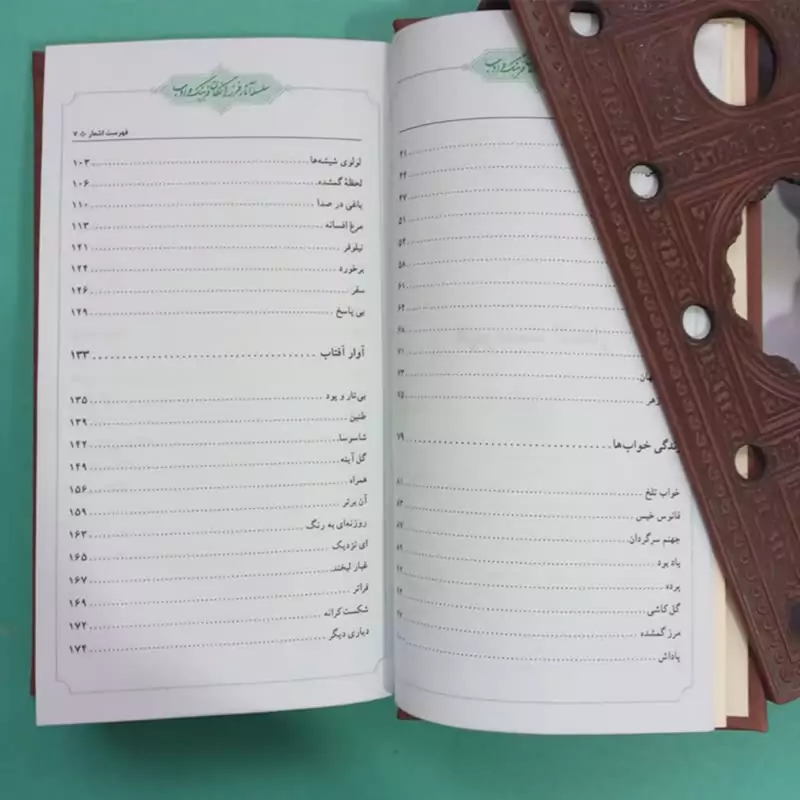 ۴۱
۴۴
۴۷
۵۱
۵۴
۵۸
۶۱
۶۴
۶۸
۷۱
۷۳
۷۵
زندگی خواب‌ها ۷۹
خواب تلخ ۸۱
فانوس خیس ۸۳
جهنم سرگردان ۸۷
یاد بود ۸۹
پرده
گل کاشی
مرز گمشده ۹۷
پاداش
سلسله آثار فرزانگان فرهنگ و ادب
فهرست اشعار ۷
لولوی شیشه‌ها ۱۰۳
لحظهٔ گمشده ۱۰۶
باغی در صدا ۱۱۰
مرغ افسانه ۱۱۳
نیلوفر ۱۲۱
برخورد ۱۲۴
سفر ۱۲۶
بی پاسخ ۱۲۹
آوار آفتاب ۱۳۳
بی‌تار و پود ۱۳۵
طنین ۱۳۹
شاسوسا ۱۴۲
گل آینه ۱۴۹
همراه ۱۵۶
آن برتر ۱۵۹
روزنه‌ای به رنگ ۱۶۳
ای نزدیک ۱۶۵
غبار لبخند ۱۶۷
فراتر ۱۶۹
شکست کرانه ۱۷۲
دیاری دیگر ۱۷۴